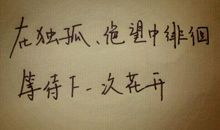 在独孤、绝望中徘徊
等待下一次花开